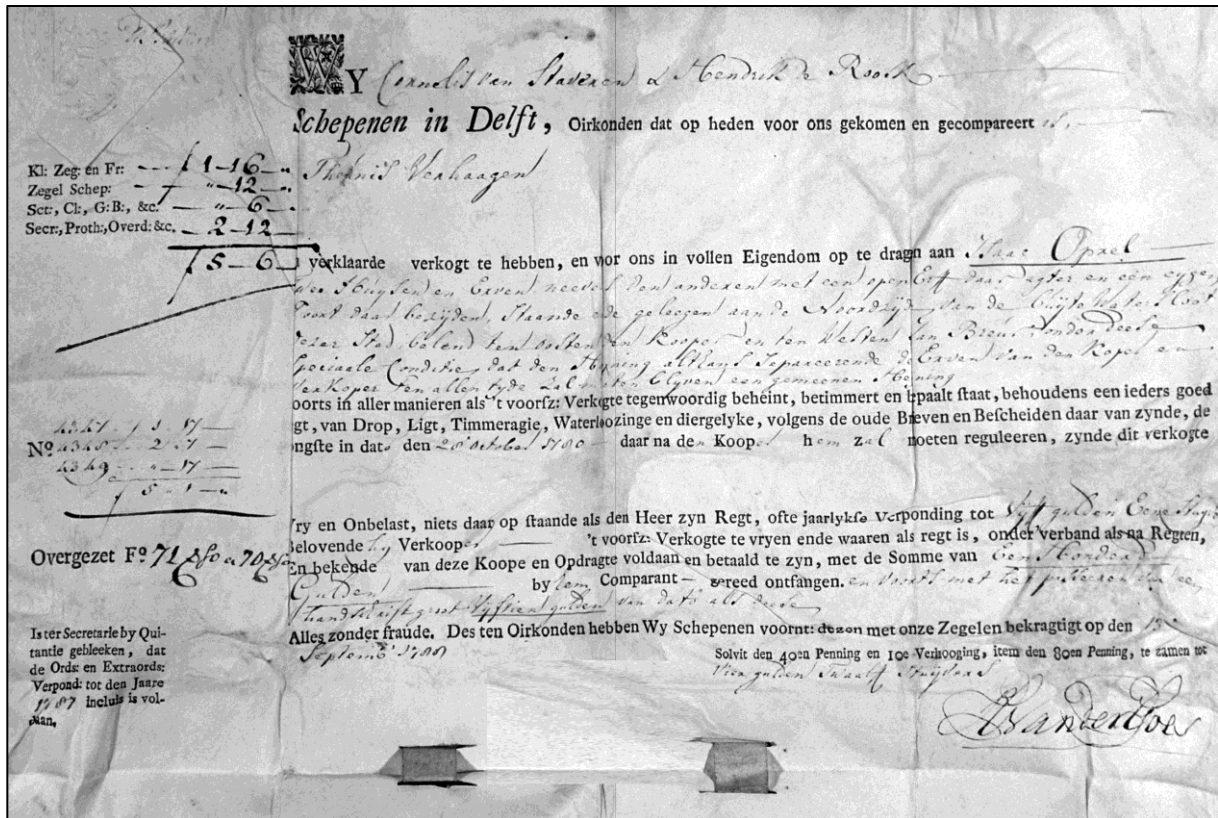 WY Cornelis van Staveren & Hendrik de Roock
Schepenen in Delft, Oirkonden dat op heden voor ons gekomen en gecompareert is,
Kl: Zeg: en Fr: ƒ 1-16-„
Zegel Schep: „-12-„
Sct:, Cl:, G:B:, &c. „-6-„
Secr:, Proth:, Overd: &c. 2-12-
ƒ 5-6
Verhaagen
verklaarde verkogt te hebben, en vor ons in vollen Eigendom op te dragn aan Isaac Oprel
Huysen en Erven nevens den anderen met een open Erf daar agter en een eygen
Poort daar bezyden, Staande ende geleegen aan de Noordzyde van de
dezer Stad belend ten oosten den Kooper en ten Westen Jan onder deese
Speciaale Conditie, dat den Heyning Separeerende de Erven van den Koper en
Verkoper ten allen tyde zal moeten blyven een gemeenen Heyning
oorts in aller manieren als 't voorſz: Verkogte tegenwoordig beheint, betimmert en bepaalt ſtaat, behoudens een ieders goed
gt, van Drop, Ligt, Timmeragie, Waterloozinge en diergelyke, volgens de oude Brieven en Beſcheiden daar van zynde, de
ongſte in dato den 28 October 1780 daar na den Kooper hem zal moeten reguleeren, zynde dit verkogte
4347 ƒ 1-17-
No 4348 2-7-
4349 „-17-
ƒ 5-1-
Vry en Onbelast, niets daar op ſtaande als den Heer zyn Regt, ofte jaarlykſe Verponding tot Vyf gulden Eene Stuyver
Belovende hy Verkooper 't voorſz: Verkogte te vryen ende waaren als regt is, onder verband als na Regten,
En bekende van deze Koope en Opdragte voldaan en betaald te zyn, met de Somme van Een Hondert
Gulden by hem Comparant gereed ontfangen. en voorts met het passeeren van een
Handschrift groot Vyftien gulden van dato als deese
Overgezet Fo. 71
Alles zonder fraude. Des ten Oirkonden hebben Wy Schepenen voornt: dezen met onze Zegelen bekragtigt op den
Septemb:
Solvit den 40en Penning en 10e Verhooging, item den 80en Penning, te zamen tot
Vier gulden Twaalf Stuyvers
Is ter Secretarie by Qui-
tantie gebleeken, dat
de Ords: en Extraords:
Verpond: tot den Jaare
1787 incluis is vol-
daan.